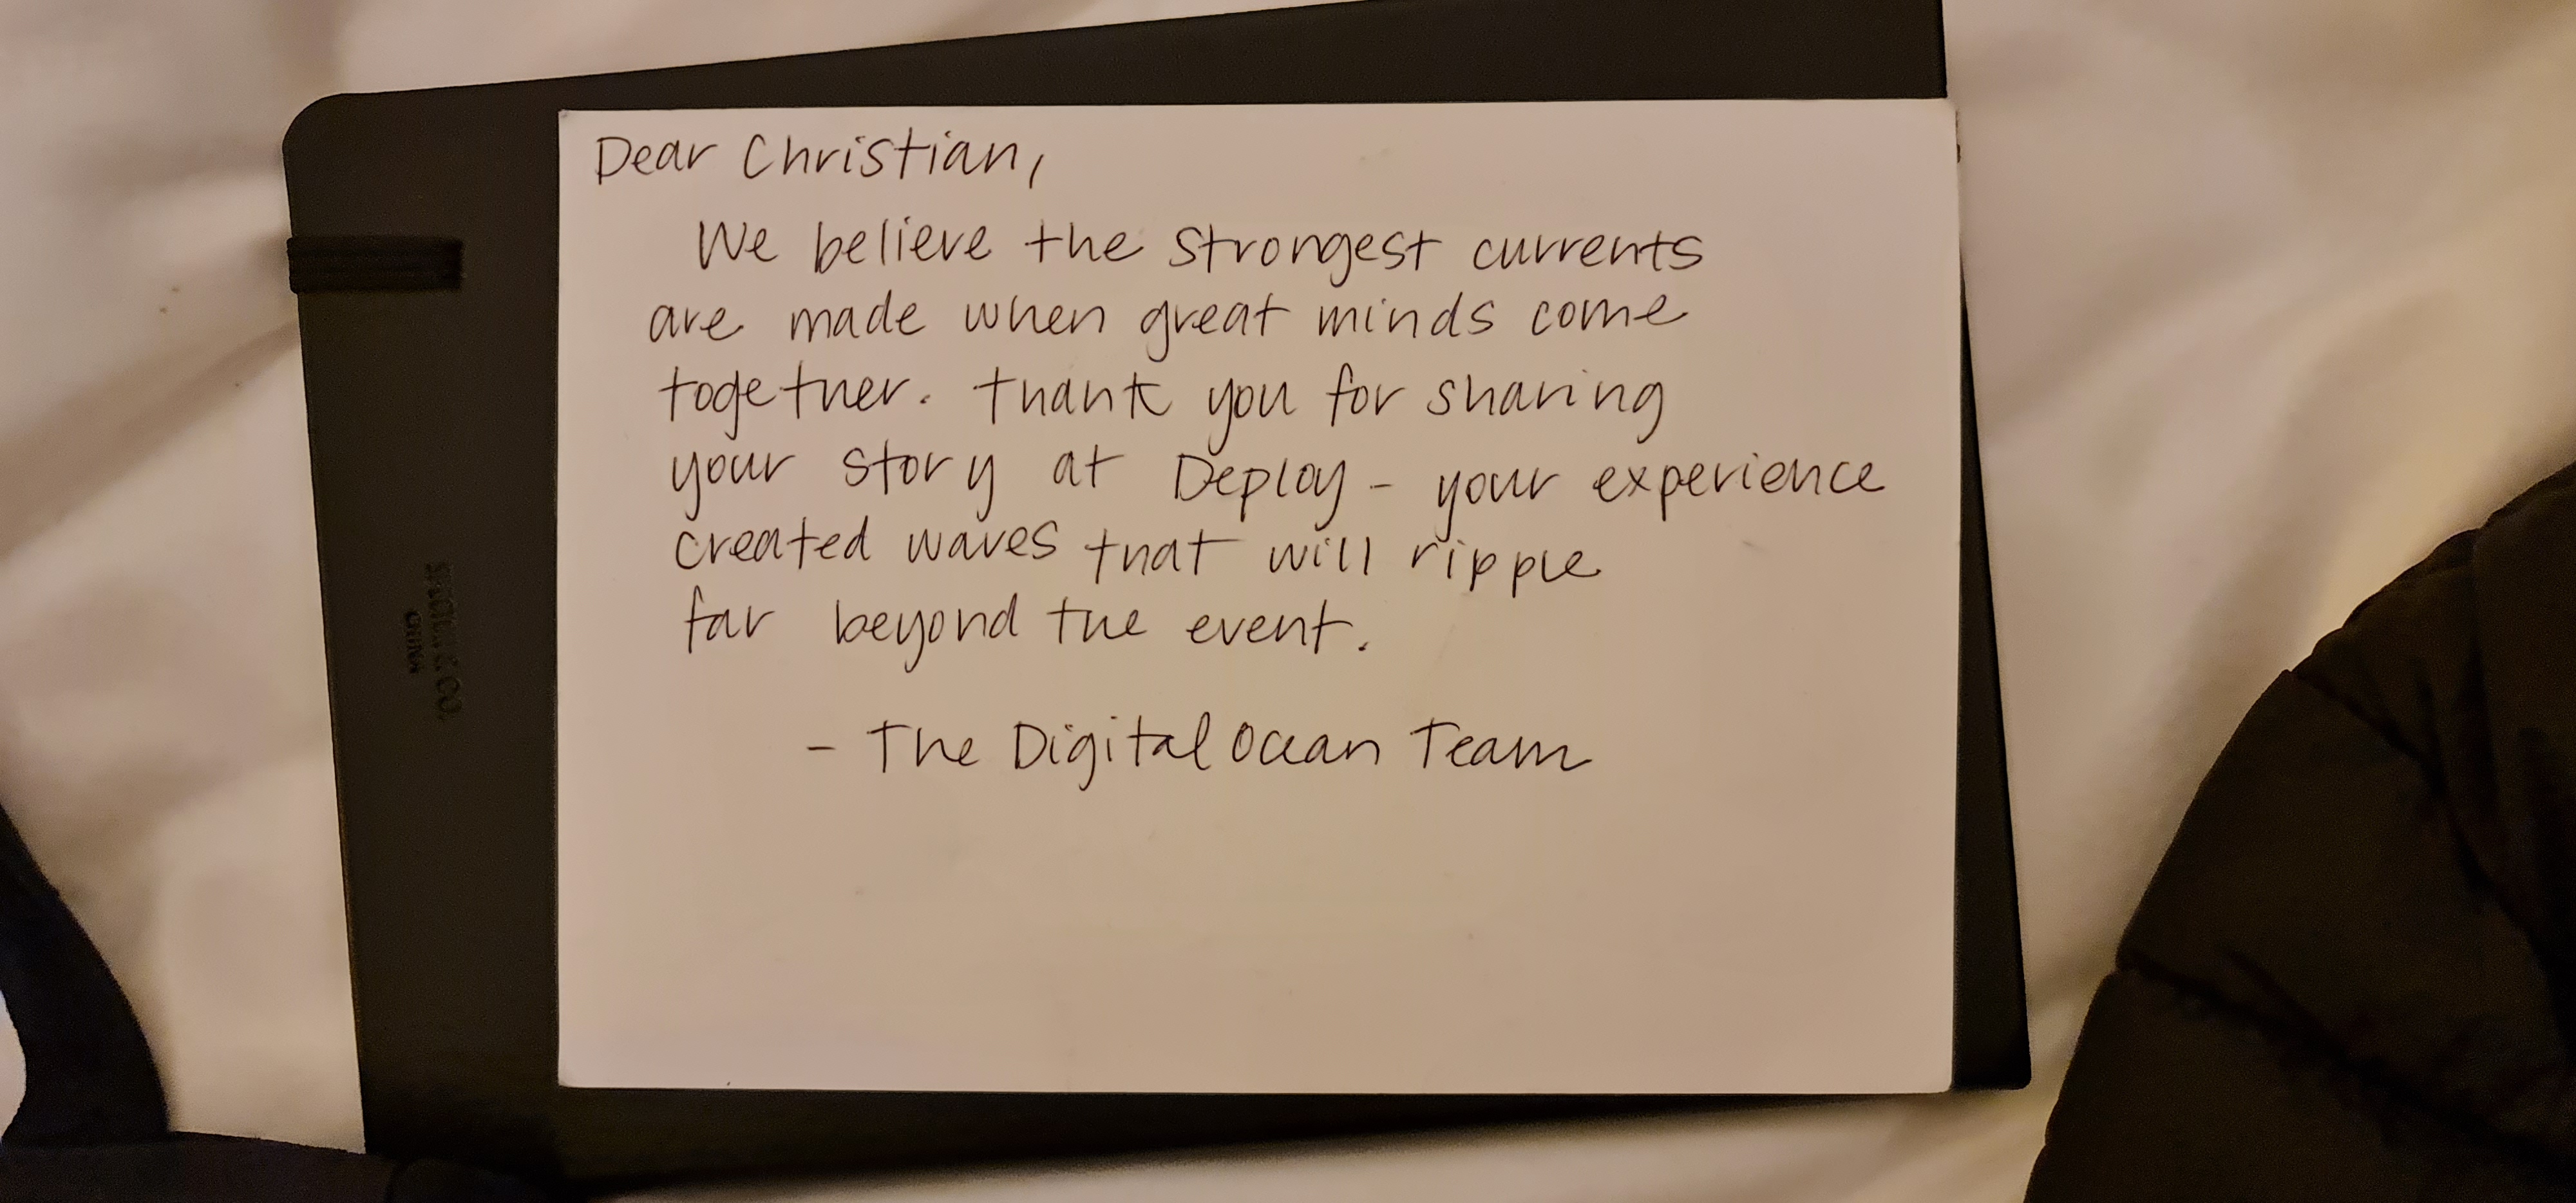 Dear Christian,
We believe the strongest currents
are made when great minds come
together. Thank you for sharing
your story at Deploy - your experience
created waves that will ripple
far beyond the event.
- The DigitalOcean Team
& CO.
CHINA